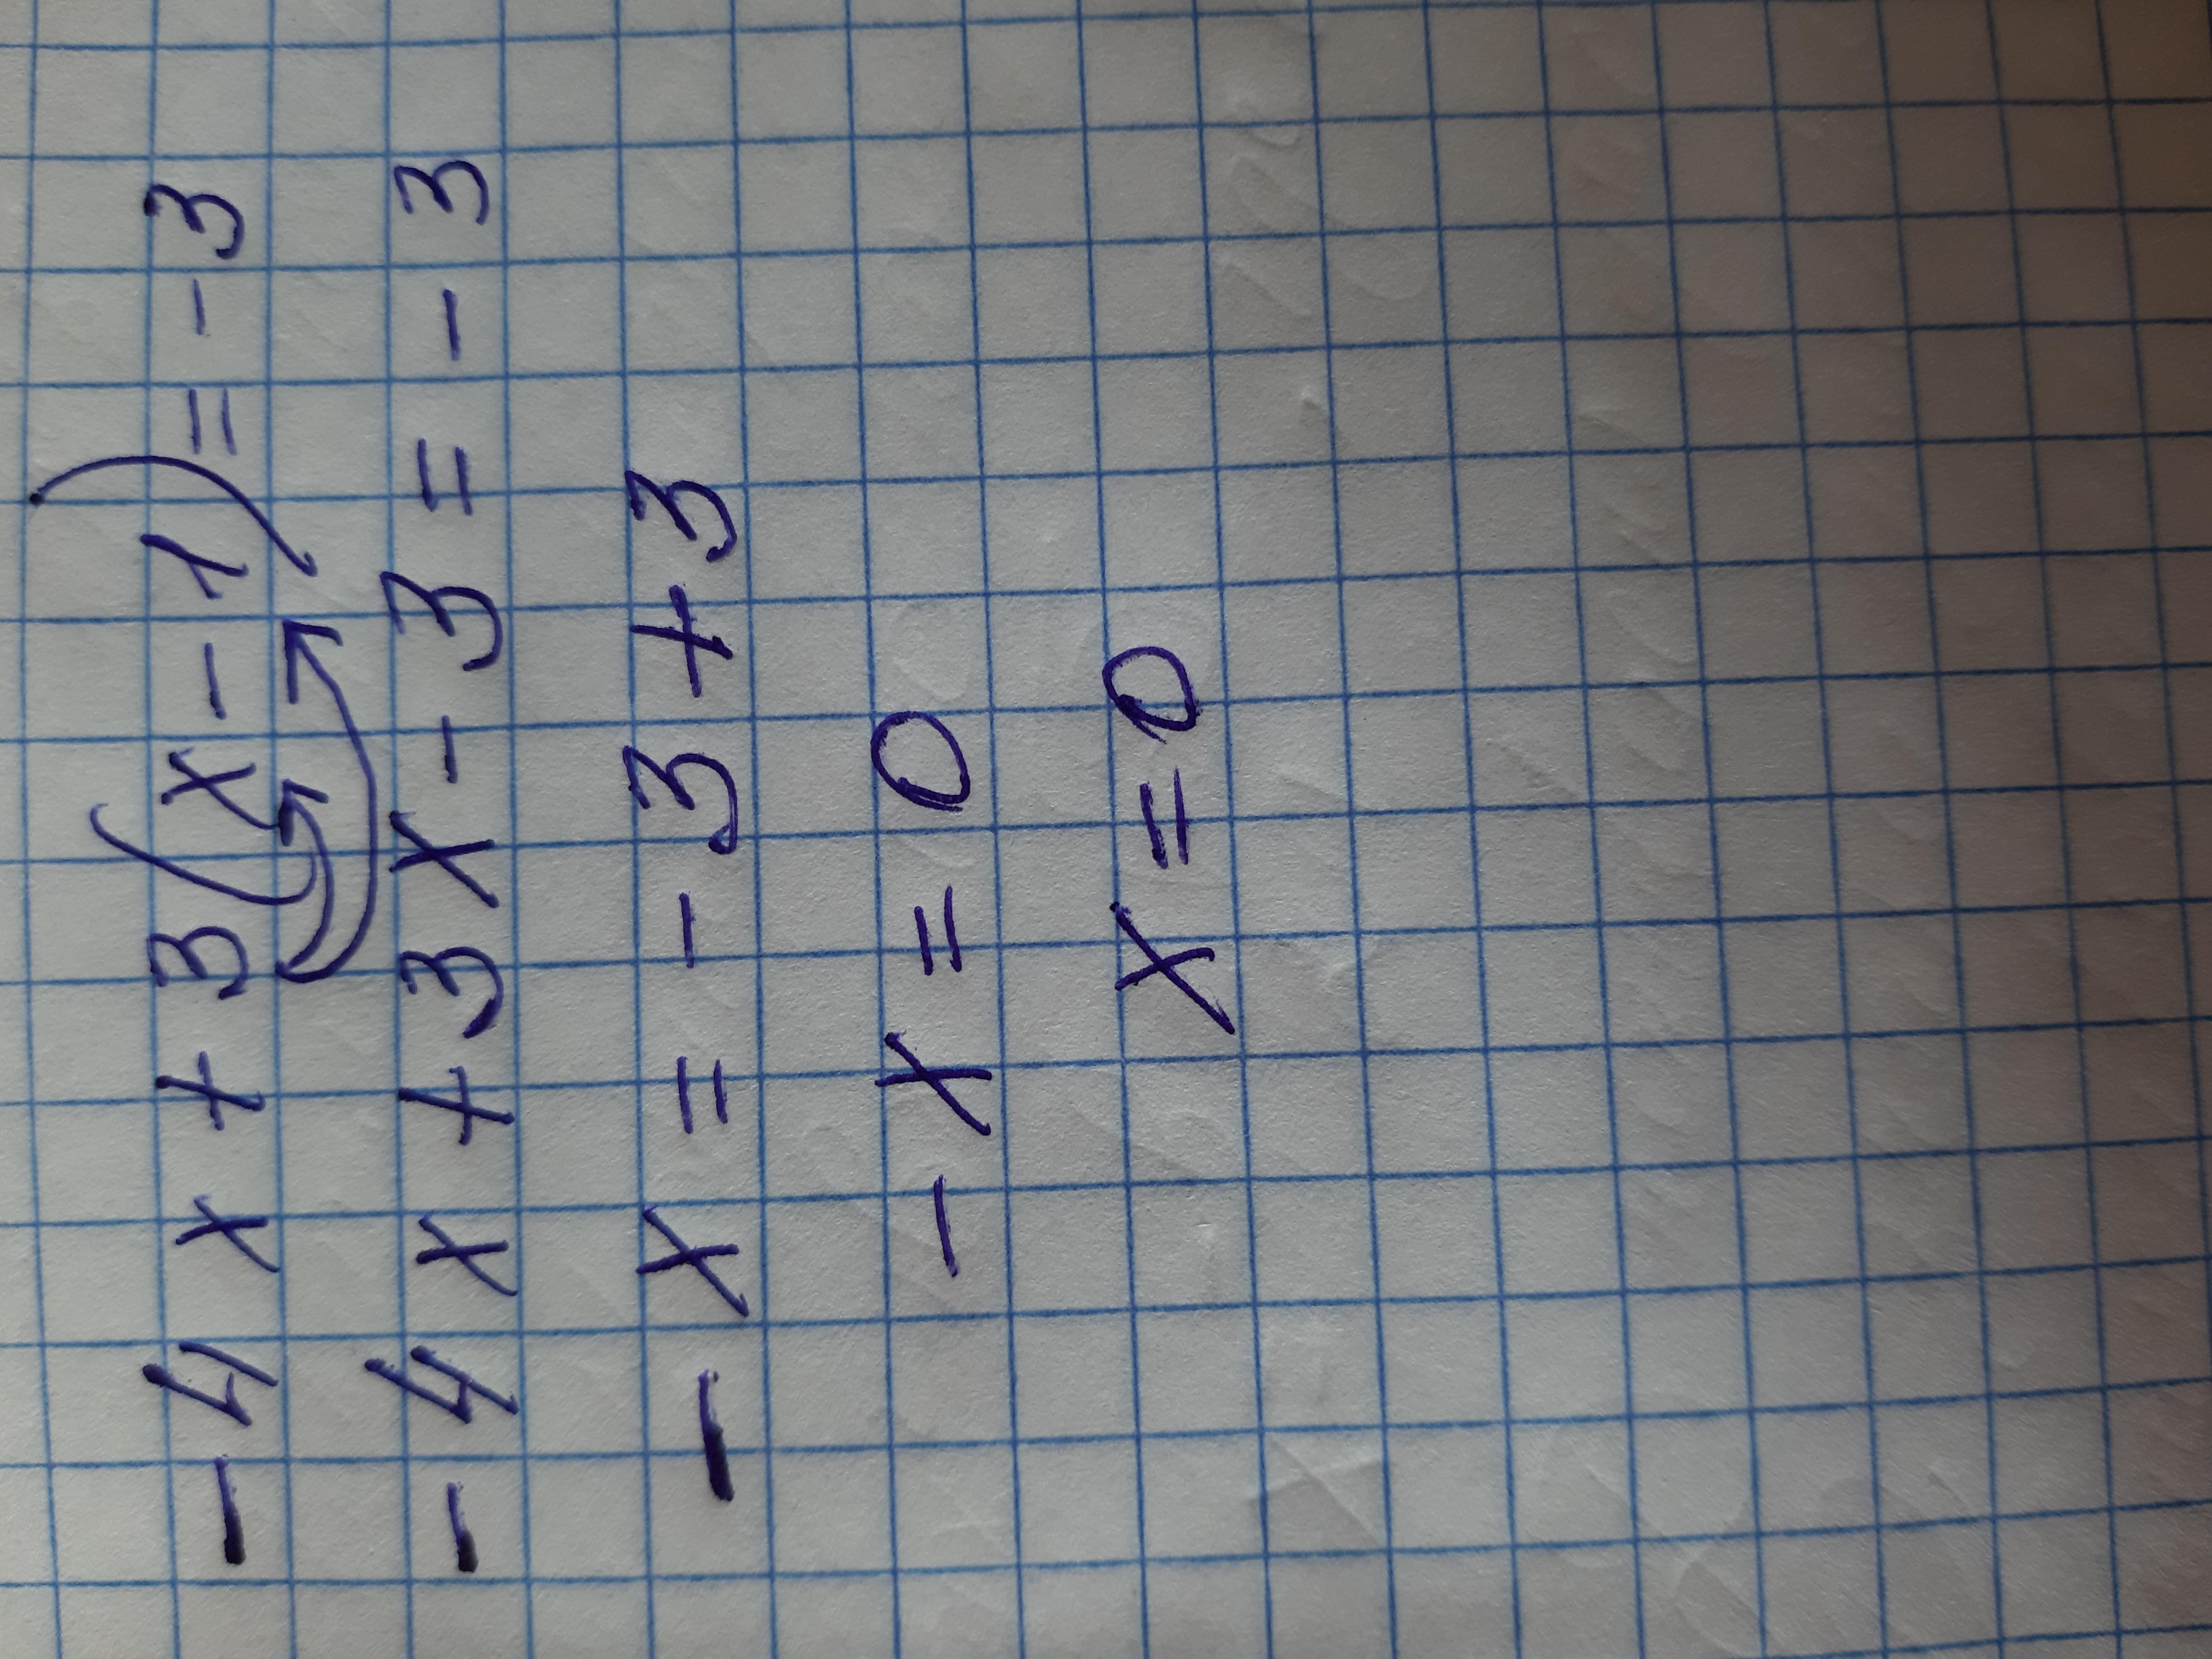 -4x+3(x-1)=-3
-4x+3x-3=-3
-x=-3+3
-x=0
x=0